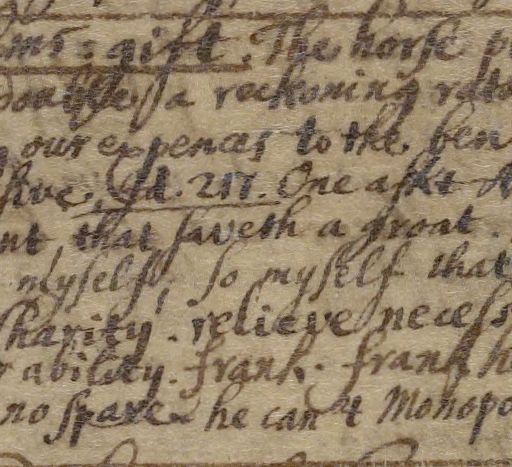 gift. The horse
a reckoning
our expences to the ben
Id. 217. One askt
that saveth a groat.
myself, so myself that
Charity. relieve necess
ability. frank. frank
no spare he can't Monopo